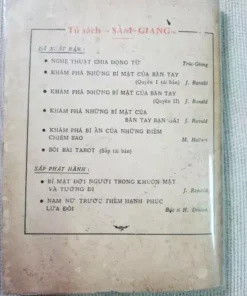 Tủ sách « SÂM-GIANG »
ĐÃ XUẤT BẢN :
• NGHỆ THUẬT CHIA ĐỘNG TỪ Trúc-Giang
• KHÁM PHÁ NHỮNG BÍ MẬT CỦA BÀN TAY
(Quyển I tái bản) J. Ranald
• KHÁM PHÁ NHỮNG BÍ MẬT CỦA BÀN TAY
(Quyển II) J. Ranald
• KHÁM PHÁ NHỮNG BÍ MẬT CỦA
BÀN TAY BẠN GÁI J. Ranald
• KHÁM PHÁ BÍ ẨN CỦA NHỮNG ĐIỀM
CHIÊM BAO M.
• BÓI BÀI TAROT (Sắp tái bản)
SẮP PHÁT HÀNH :
• BÍ MẬT ĐỜI NGƯỜI TRONG KHUÔN MẶT
VÀ TƯỚNG ĐI J.
• NAM NỮ TRƯỚC THỀM HẠNH PHÚC
LỨA ĐÔI